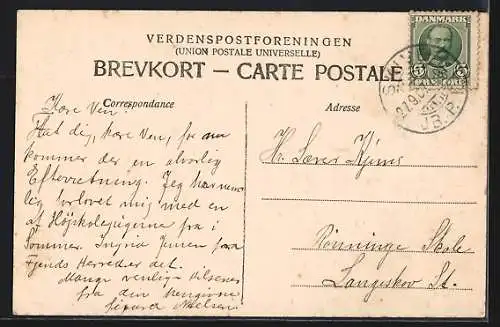 VERDENSPOSTFORENINGEN
(UNION POSTALE UNIVERSELLE)
BREVKORT — CARTE POSTALE
DANMARK
5 5
Correspondance
Adresse
Kære Ven!
Hat dig, kære Ven, for nu
kommer der en alvorlig
Efterretning. Jeg har nem-
lig forlovet mig med en
af Højskolepigerne fra i
Sommer. Ingrid Jensen fra
Fjends Herred er det.
Mange venlige Hilsener
fra din hengivne
Nielsen
Hr. Lærer
Rønninge Skole
Langeskov St.